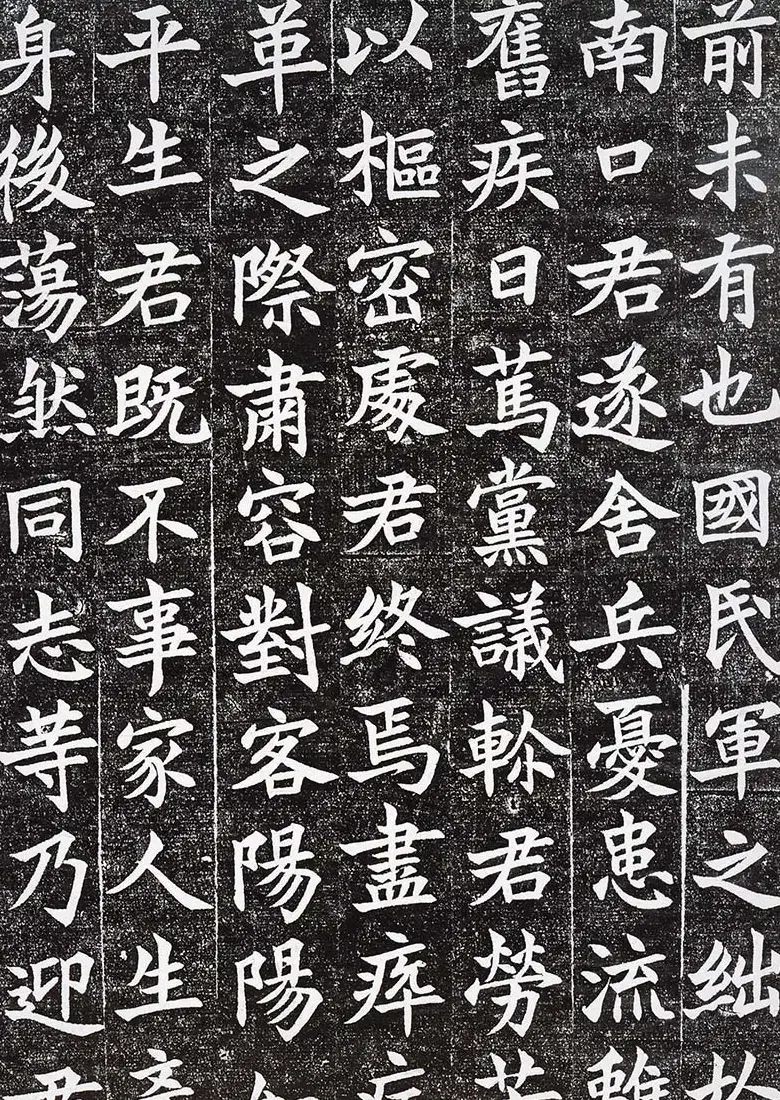 前未有也國民軍之絀於
南口君遂舍兵憂患流離
舊疾日篤黨議軫君勞苦
以樞密處君終焉盡瘁
革之際肅容對客陽陽如
平生君既不事家人生產
身後蕩然同志等乃迎君